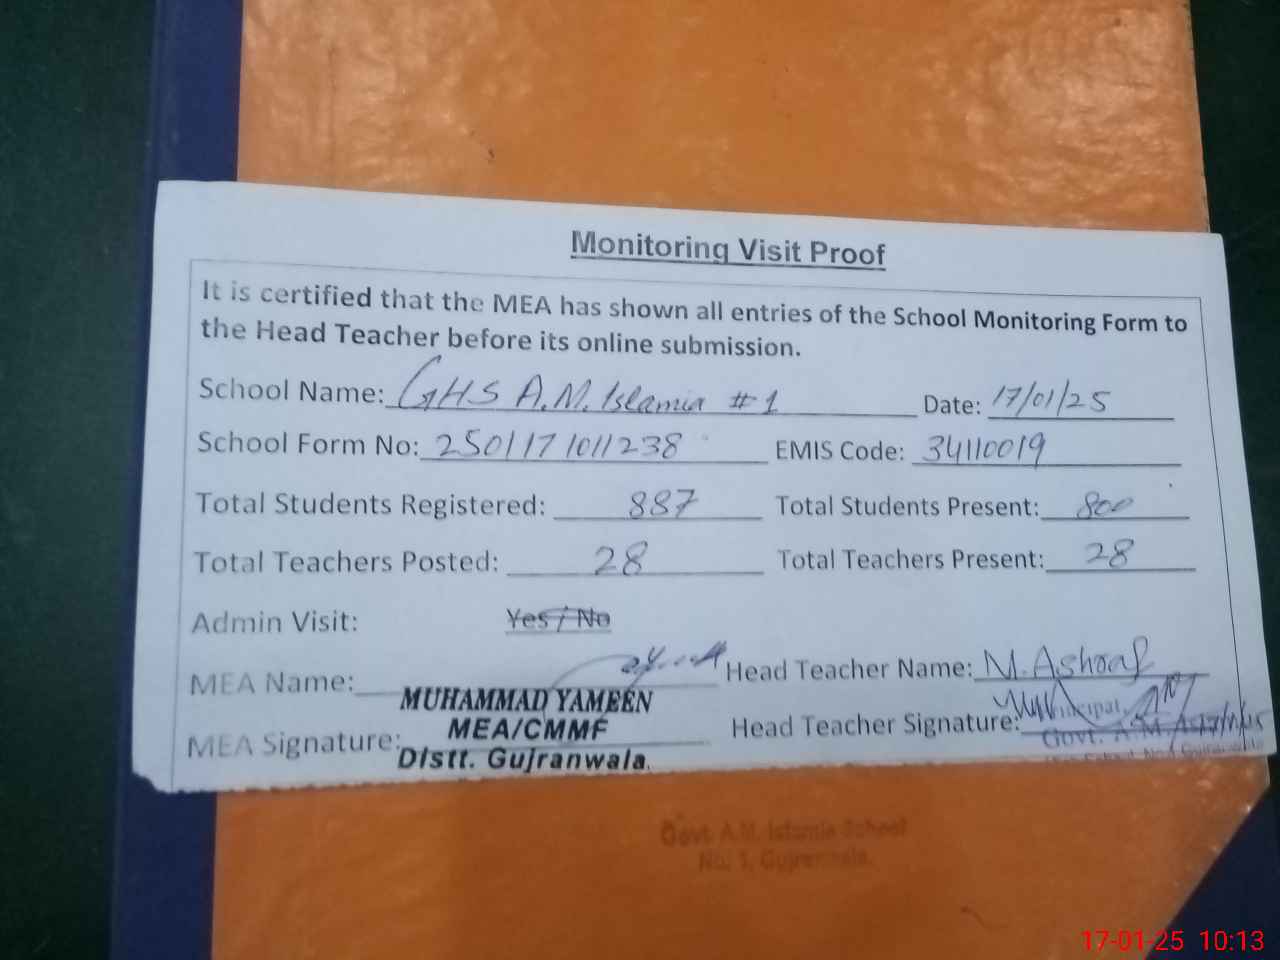 Monitoring Visit Proof
It is certified that the MEA has shown all entries of the School Monitoring Form to
the Head Teacher before its online submission.
School Name: GHS A.M. Islamia #1 Date: 17/01/25
School Form No: 250117 1011238 EMIS Code: 34110019
Total Students Registered: 887 Total Students Present: 800
Total Teachers Posted: 28 Total Teachers Present: 28
Admin Visit: Yes / No
MEA Name: Head Teacher Name: M. Ashraf
MUHAMMAD YAMEEN
MEA/CMMF
MEA Signature: Head Teacher Signature: Principal
Distt. Gujranwala. Govt. A.M.
Govt. A.M. Islamia School
No. 1, Gujranwala.
17-01-25 10:13